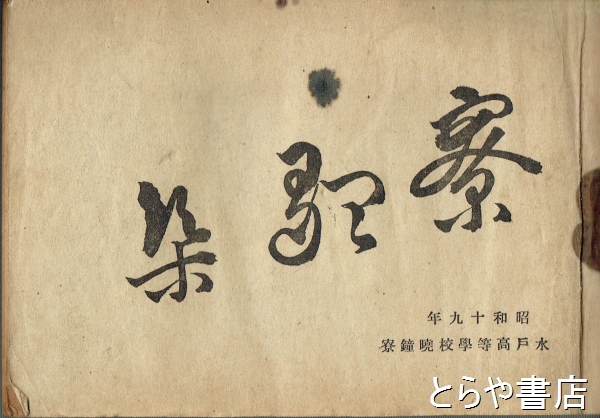 寮歌集
昭和十九年
水戸高等學校曉鐘寮
とらや書店